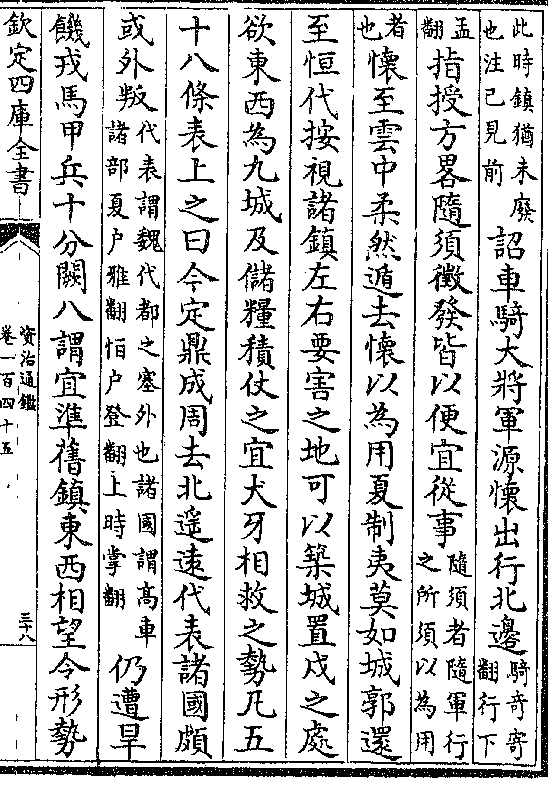 此時鎮猶未廢
也注已見前
詔車騎大將軍源懷出行北邊
騎奇寄
翻行下
孟
翻
指授方畧隨須徴發皆以便宜從事
隨須者隨軍行
之所須以為用
者
也
懷至雲中柔然遁去懷以為用夏制夷莫如城郭還
至恒代按視諸鎮左右要害之地可以築城置戍之處
欲東西為九城及儲糧積仗之宜犬牙相救之勢凡五
十八條表上之曰今定鼎成周去北遥逺代表諸國頗
或外叛
代表謂魏代都之塞外也諸國謂髙車
諸部夏户雅翻怕户登翻上時掌翻
仍遭旱
饑戎馬甲兵十分闕八謂宜準舊鎮東西相望令形勢
欽定四庫全書
資治通鑑
卷一百四十五
三十八